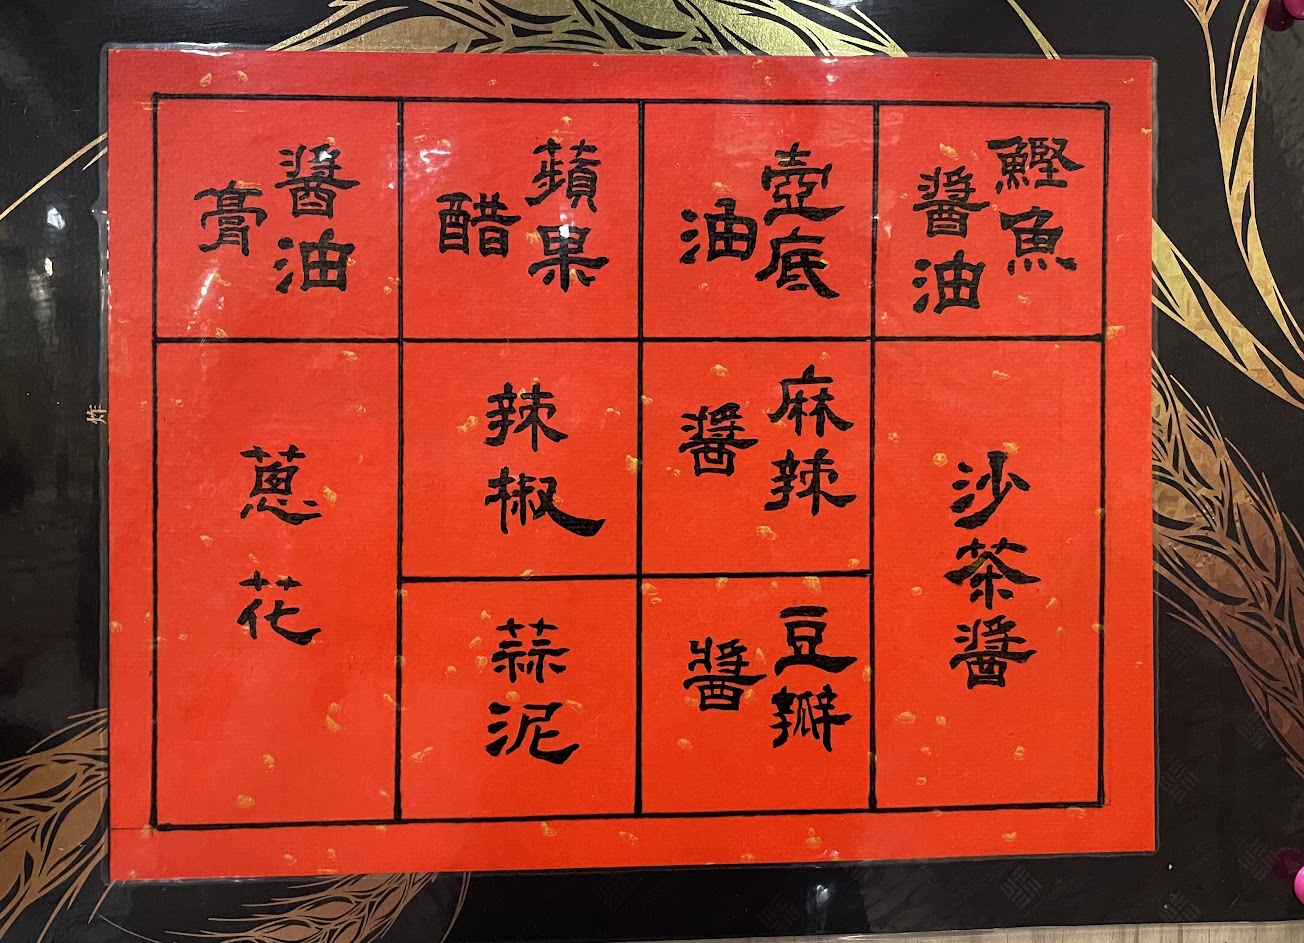 鰹魚
醬油
壺底
油
蘋果
醋
醬油
膏
沙茶醬
麻辣
醬
豆瓣
醬
辣椒
蒜泥
蔥花
炸